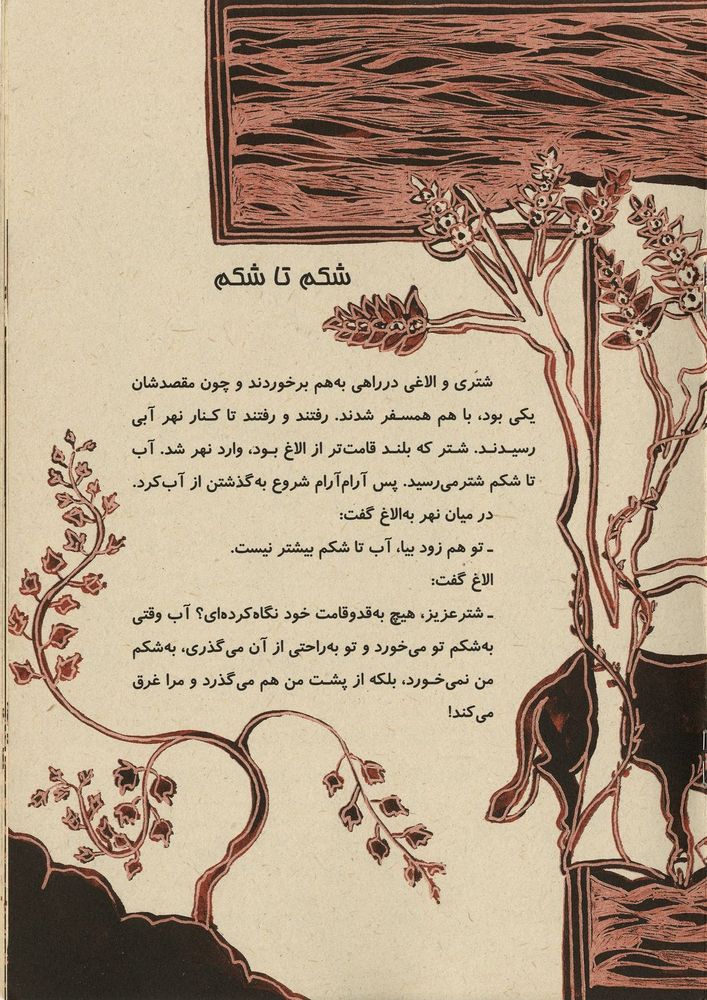 شکم تا شکم
شتری و الاغی درراهی به‌هم برخوردند و چون مقصدشان
یکی بود، با هم همسفر شدند. رفتند و رفتند تا کنار نهر آبی
رسیدند. شتر که بلند قامت‌تر از الاغ بود، وارد نهر شد. آب
تا شکم شترمی‌رسید. پس آرام‌آرام شروع به‌گذشتن از آب‌کرد.
در میان نهر به‌الاغ گفت:
ـ تو هم زود بیا، آب تا شکم بیشتر نیست.
الاغ گفت:
ـ شترعزیز، هیچ به‌قدوقامت خود نگاه‌کرده‌ای؟ آب وقتی
به‌شکم تو می‌خورد و تو به‌راحتی از آن می‌گذری، به‌شکم
من نمی‌خورد، بلکه از پشت من هم می‌گذرد و مرا غرق
می‌کند!